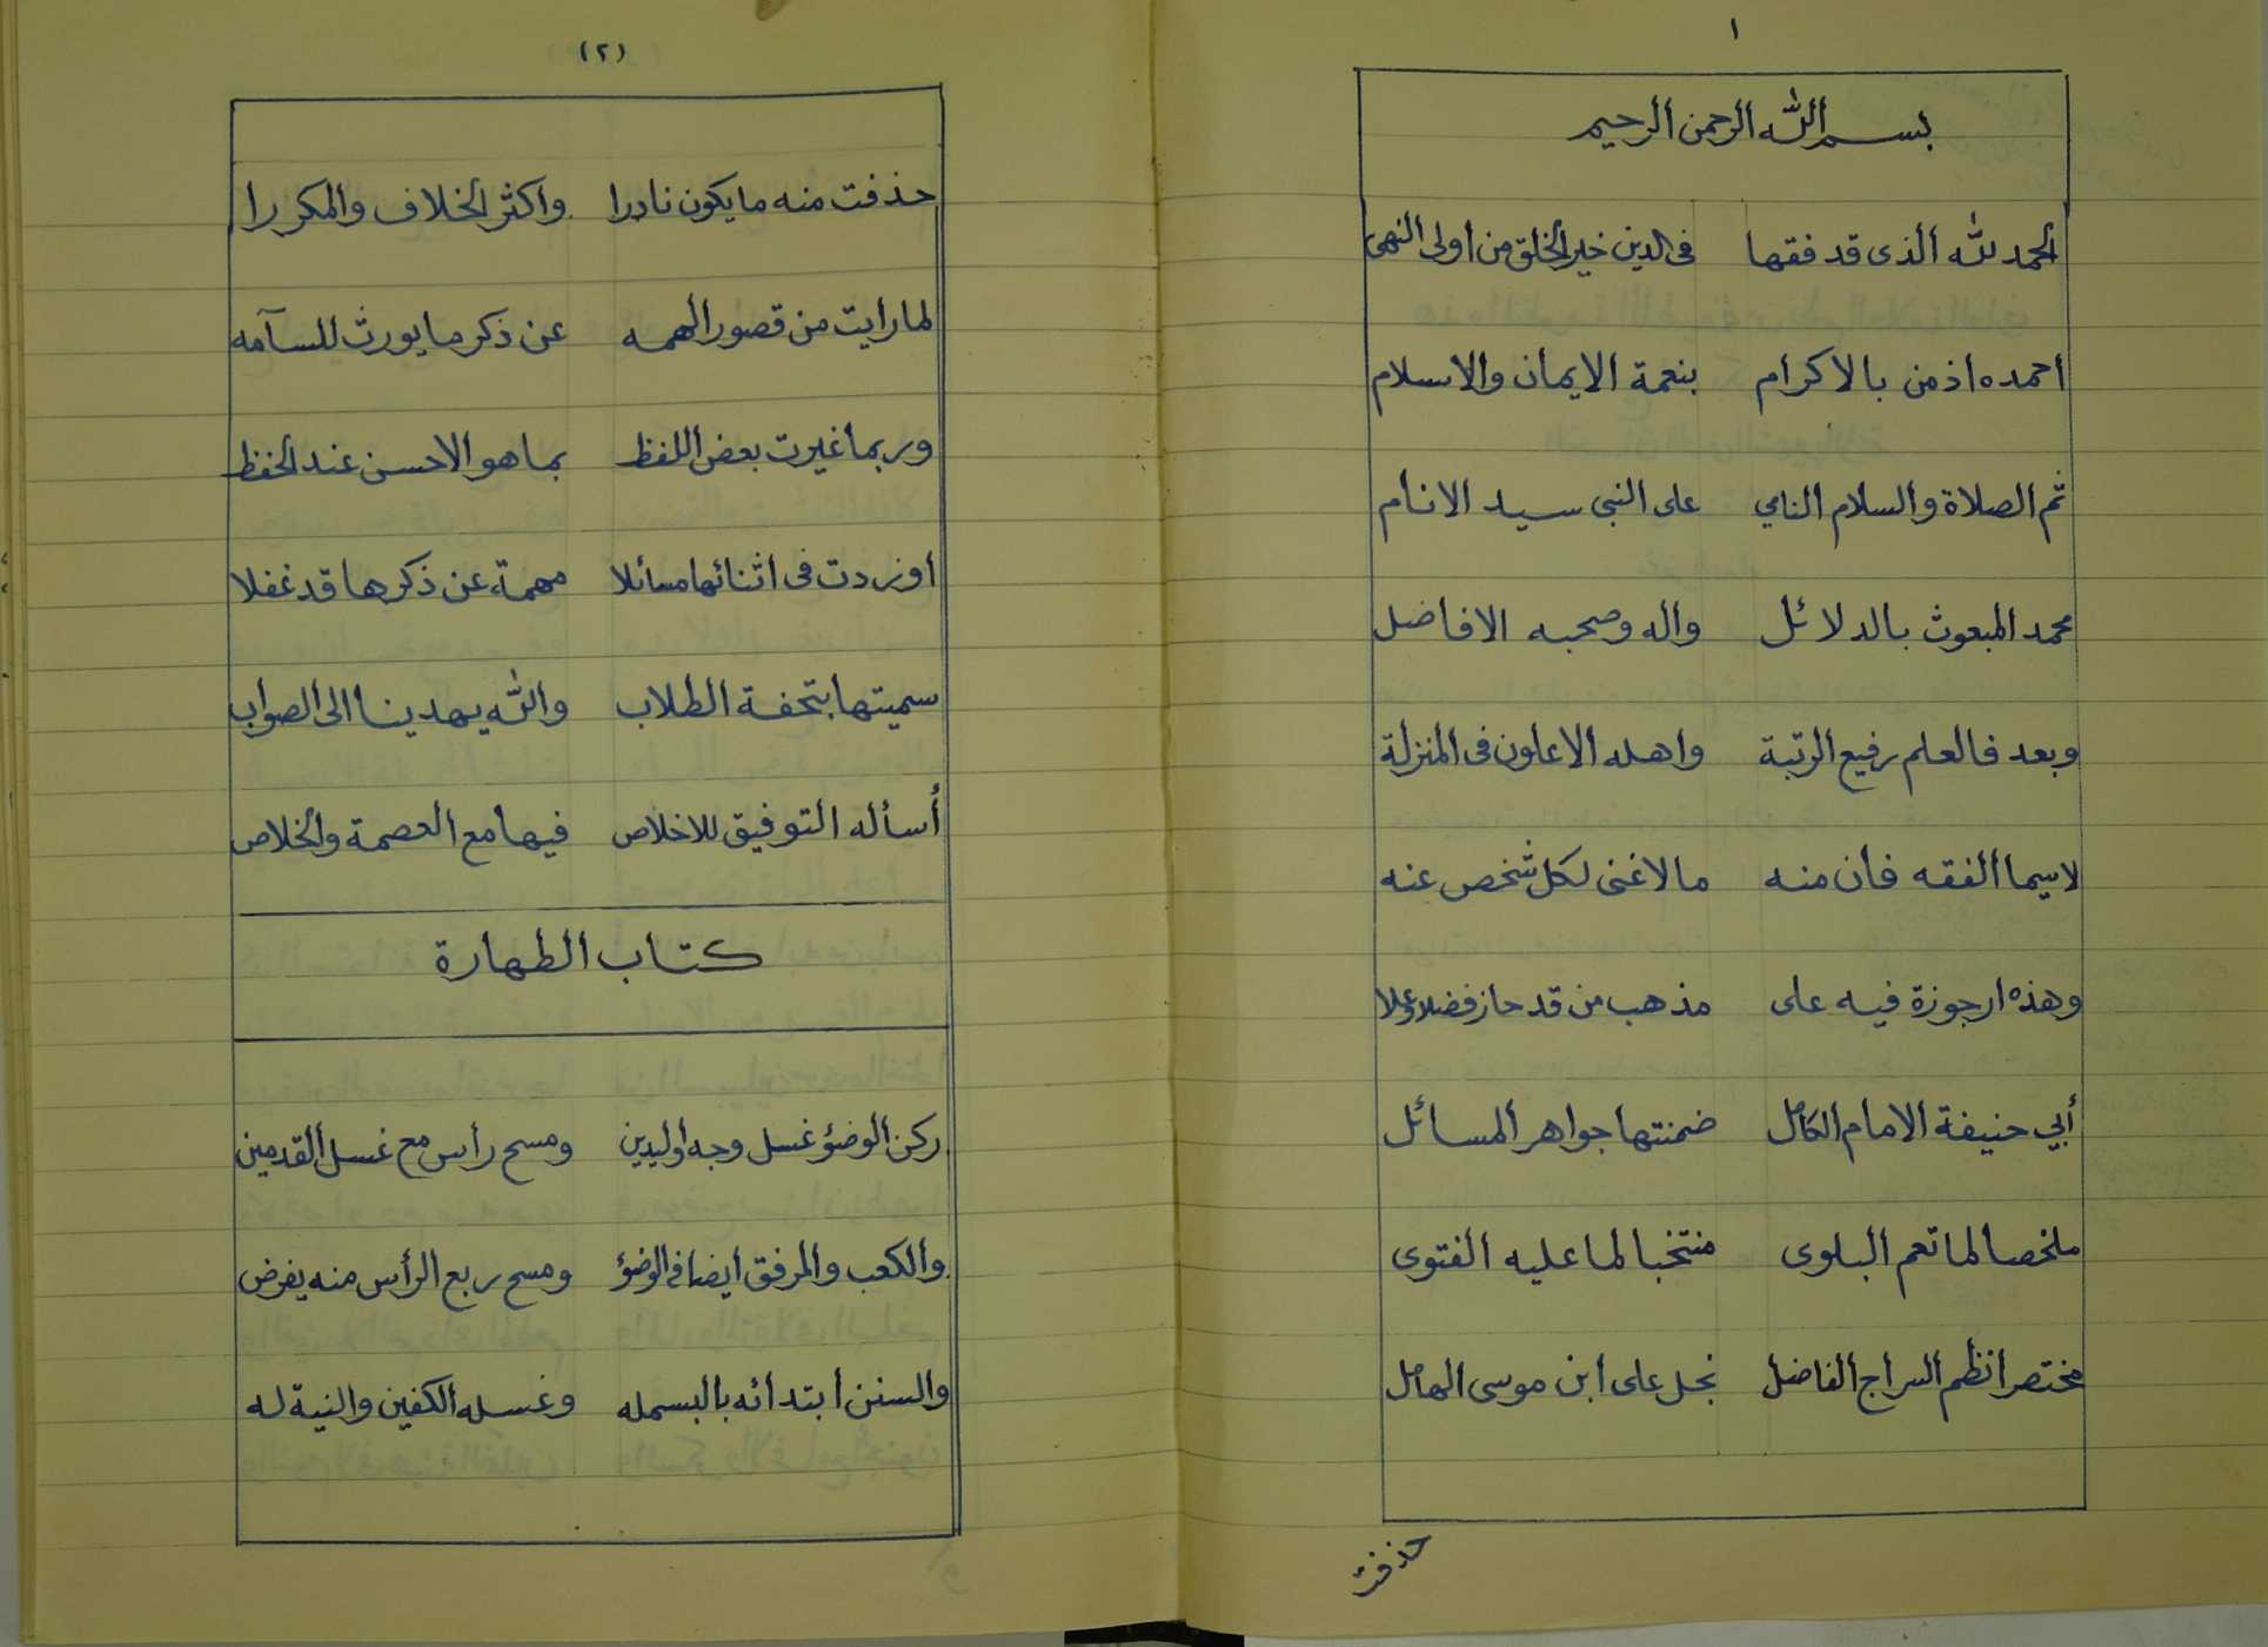 ١
بسم الله الرحمن الرحيم
الحمد لله الذى قد فقها فى الدين خير الخلق من اولى النهى
احمده اذ من بالاكرام بنعمة الايمان والاسلام
ثم الصلاة والسلام النامي على النبى سيد الانام
محمد المبعوث بالدلائل واله وصحبه الافاضل
وبعد فالعلم رفيع الرتبة واهله الاعلون فى المنزلة
لاسيما الفقه فان منه مالاغنى لكل شخص عنه
وهذه ارجوزة فيه على مذهب من قد حاز فضلا وعلا
أبي حنيفة الامام الكامل ضمنتها جواهر المسائل
ملخصا لما تعم البلوى منتخبا لما عليه الفتوى
مختصرا نظم السراج الفاضل نجل على ابن موسى الهامل
حذفت
(٢)
حذفت منه مايكون نادرا واكثر الخلاف والمكررا
لما رايت من قصور الهمه عن ذكر مايورث للسآمه
وربما غيرت بعض اللفظ بماهو الاحسن عند الحفظ
اوزدت فى اثنائها مسائلا مهمة عن ذكرها قد غفلا
سميتها بتحفة الطلاب والله يهدينا الى الصواب
أسأله التوفيق للاخلاص فيها مع العصمة والخلاص
كتاب الطهارة
ركن الوضؤ غسل وجه اوليدين ومسح رأس مع غسل القدمين
والكعب والمرفق ايضا فى الوضؤ ومسح ربع الرأس منه يفرض
والسنن ابتدائه بالبسمله وغسله الكفين والنية له